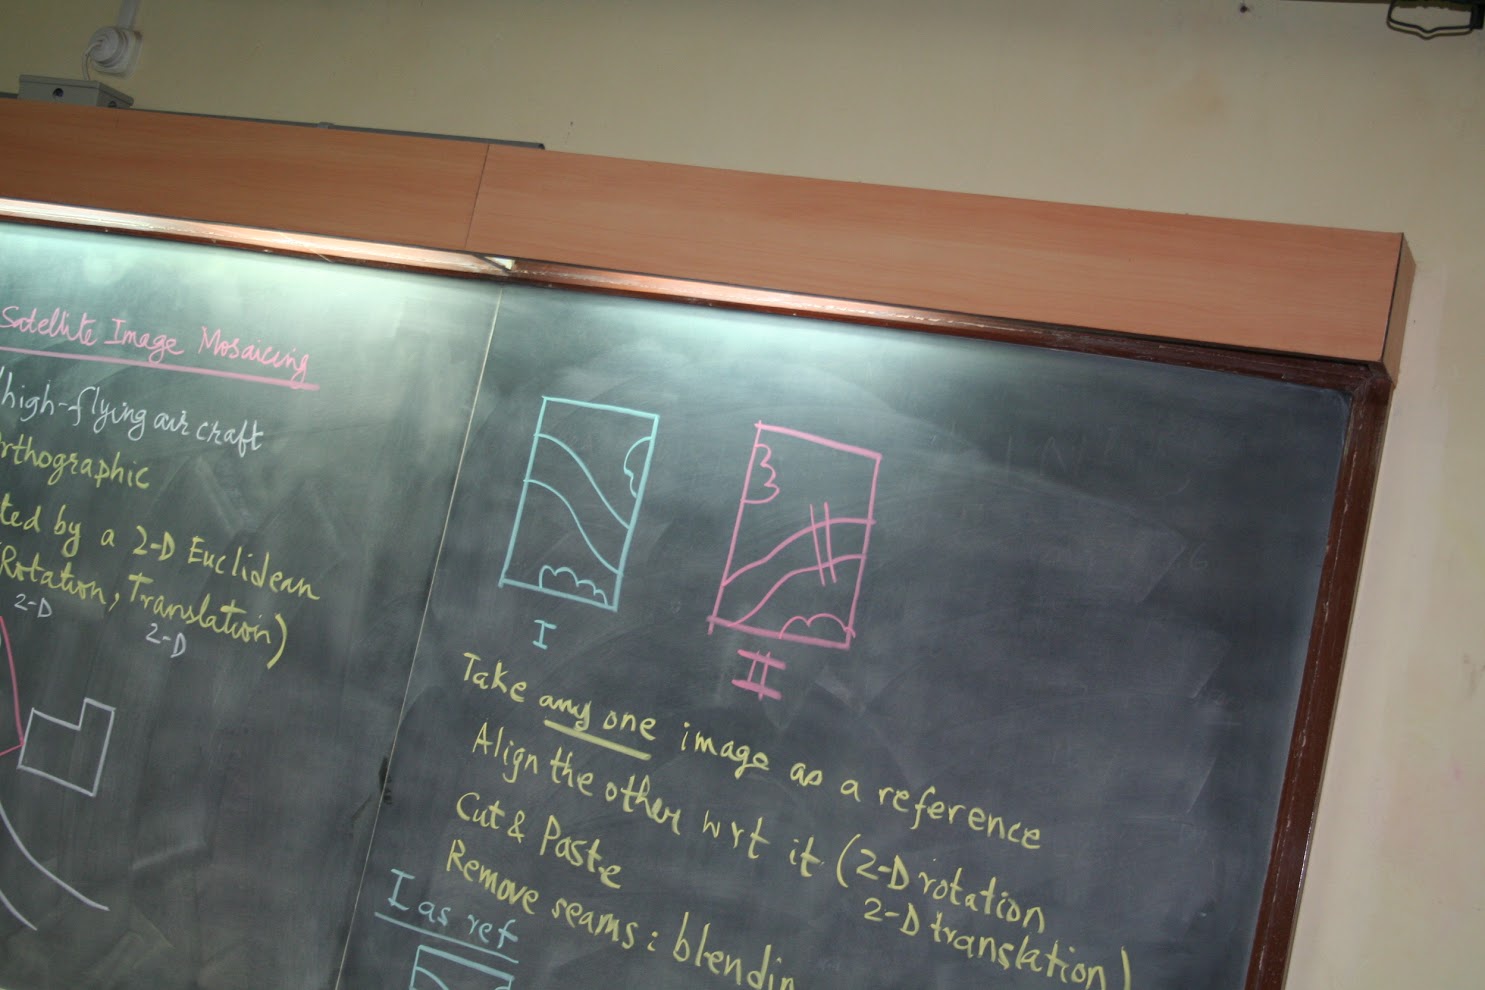 Satellite Image Mosaicing
high-flying air craft
orthographic
ted by a 2-D Euclidean
(Rotation, Translation)
2-D 2-D
I
II
Take any one image as a reference
Align the other wrt it (2-D rotation
2-D translation)
Cut & Paste
Remove seams: blendin
I as ref